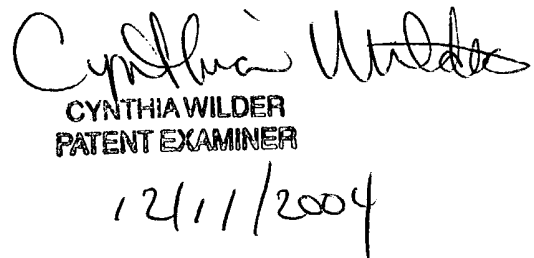 Cynthia Wilder
CYNTHIA WILDER
PATENT EXAMINER
12/11/2004